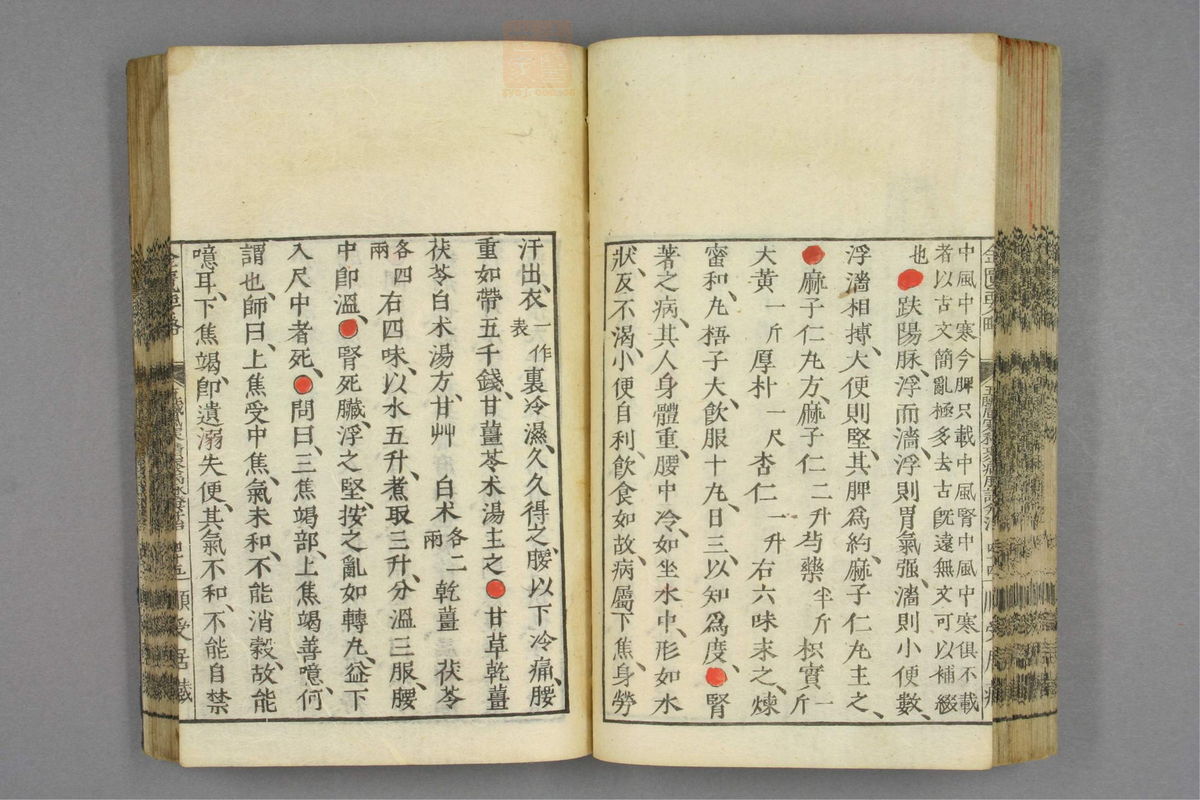 中風中寒今脾只載中風腎中風中寒俱不載
者以古文簡亂極多去古旣遠無文可以補綴
也
趺陽脉浮而濇浮則胃氣强濇則小便數
浮濇相搏大便則堅其脾爲約麻子仁丸主之
麻子仁丸方麻子仁二升芍藥半斤枳實一斤
大黃一斤厚朴一尺杏仁一升右六味末之煉
蜜和丸梧子大飮服十丸日三以知爲度腎
著之病其人身體重腰中冷如坐水中形如水
狀反不渴小便自利飮食如故病屬下焦身勞
汗出衣一作表裏冷濕久久得之腰以下冷痛腰
重如帶五千錢甘薑苓术湯主之甘草乾薑
茯苓白术湯方甘艸白术各二兩乾薑茯苓
各四兩右四味以水五升煮取三升分溫三服腰
中卽溫腎死臟浮之堅按之亂如轉丸益下
入尺中者死問曰三焦竭部上焦竭善噫何
謂也師曰上焦受中焦氣未和不能消穀故能
噫耳下焦竭卽遺溺失便其氣不和不能自禁